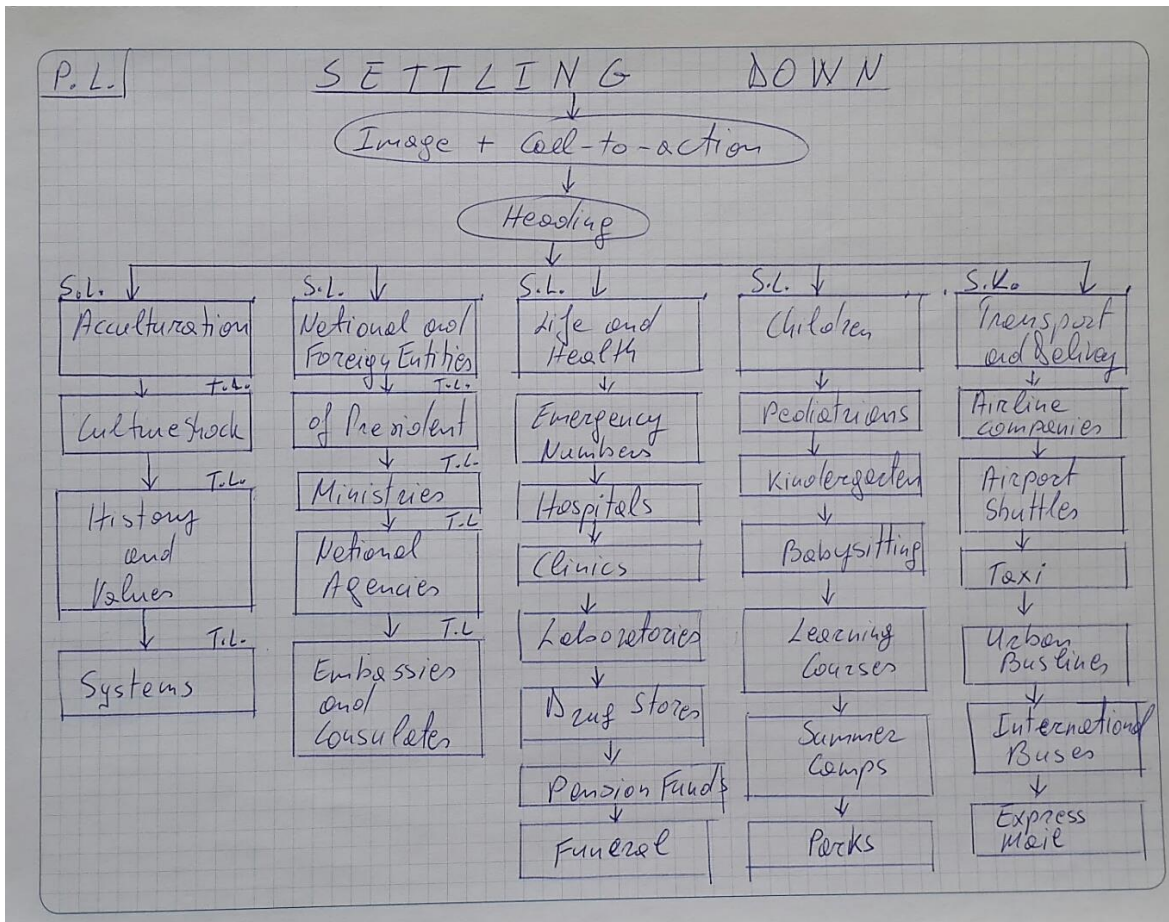 P.L.
SETTLING DOWN
Image + Call-to-action
Heading
S.L.
Acculturation
T.L.
Culture Shock
T.L.
History
and
Values
T.L.
Systems
S.L.
National and
Foreign Entities
T.L.
of President
T.L.
Ministries
T.L
National
Agencies
T.L
Embassies
and
Consulates
S.L.
Life and
Health
Emergency
Numbers
Hospitals
Clinics
Laboratories
Drug Stores
Pension Funds
Funeral
S.L.
Children
Pediatrians
Kindergarten
Babysitting
Learning
Courses
Summer
Camps
Parks
S.K.
Transport
and Delivey
Airline
companies
Airport
Shuttles
Taxi
Urban
Buslines
International
Buses
Express
Mail